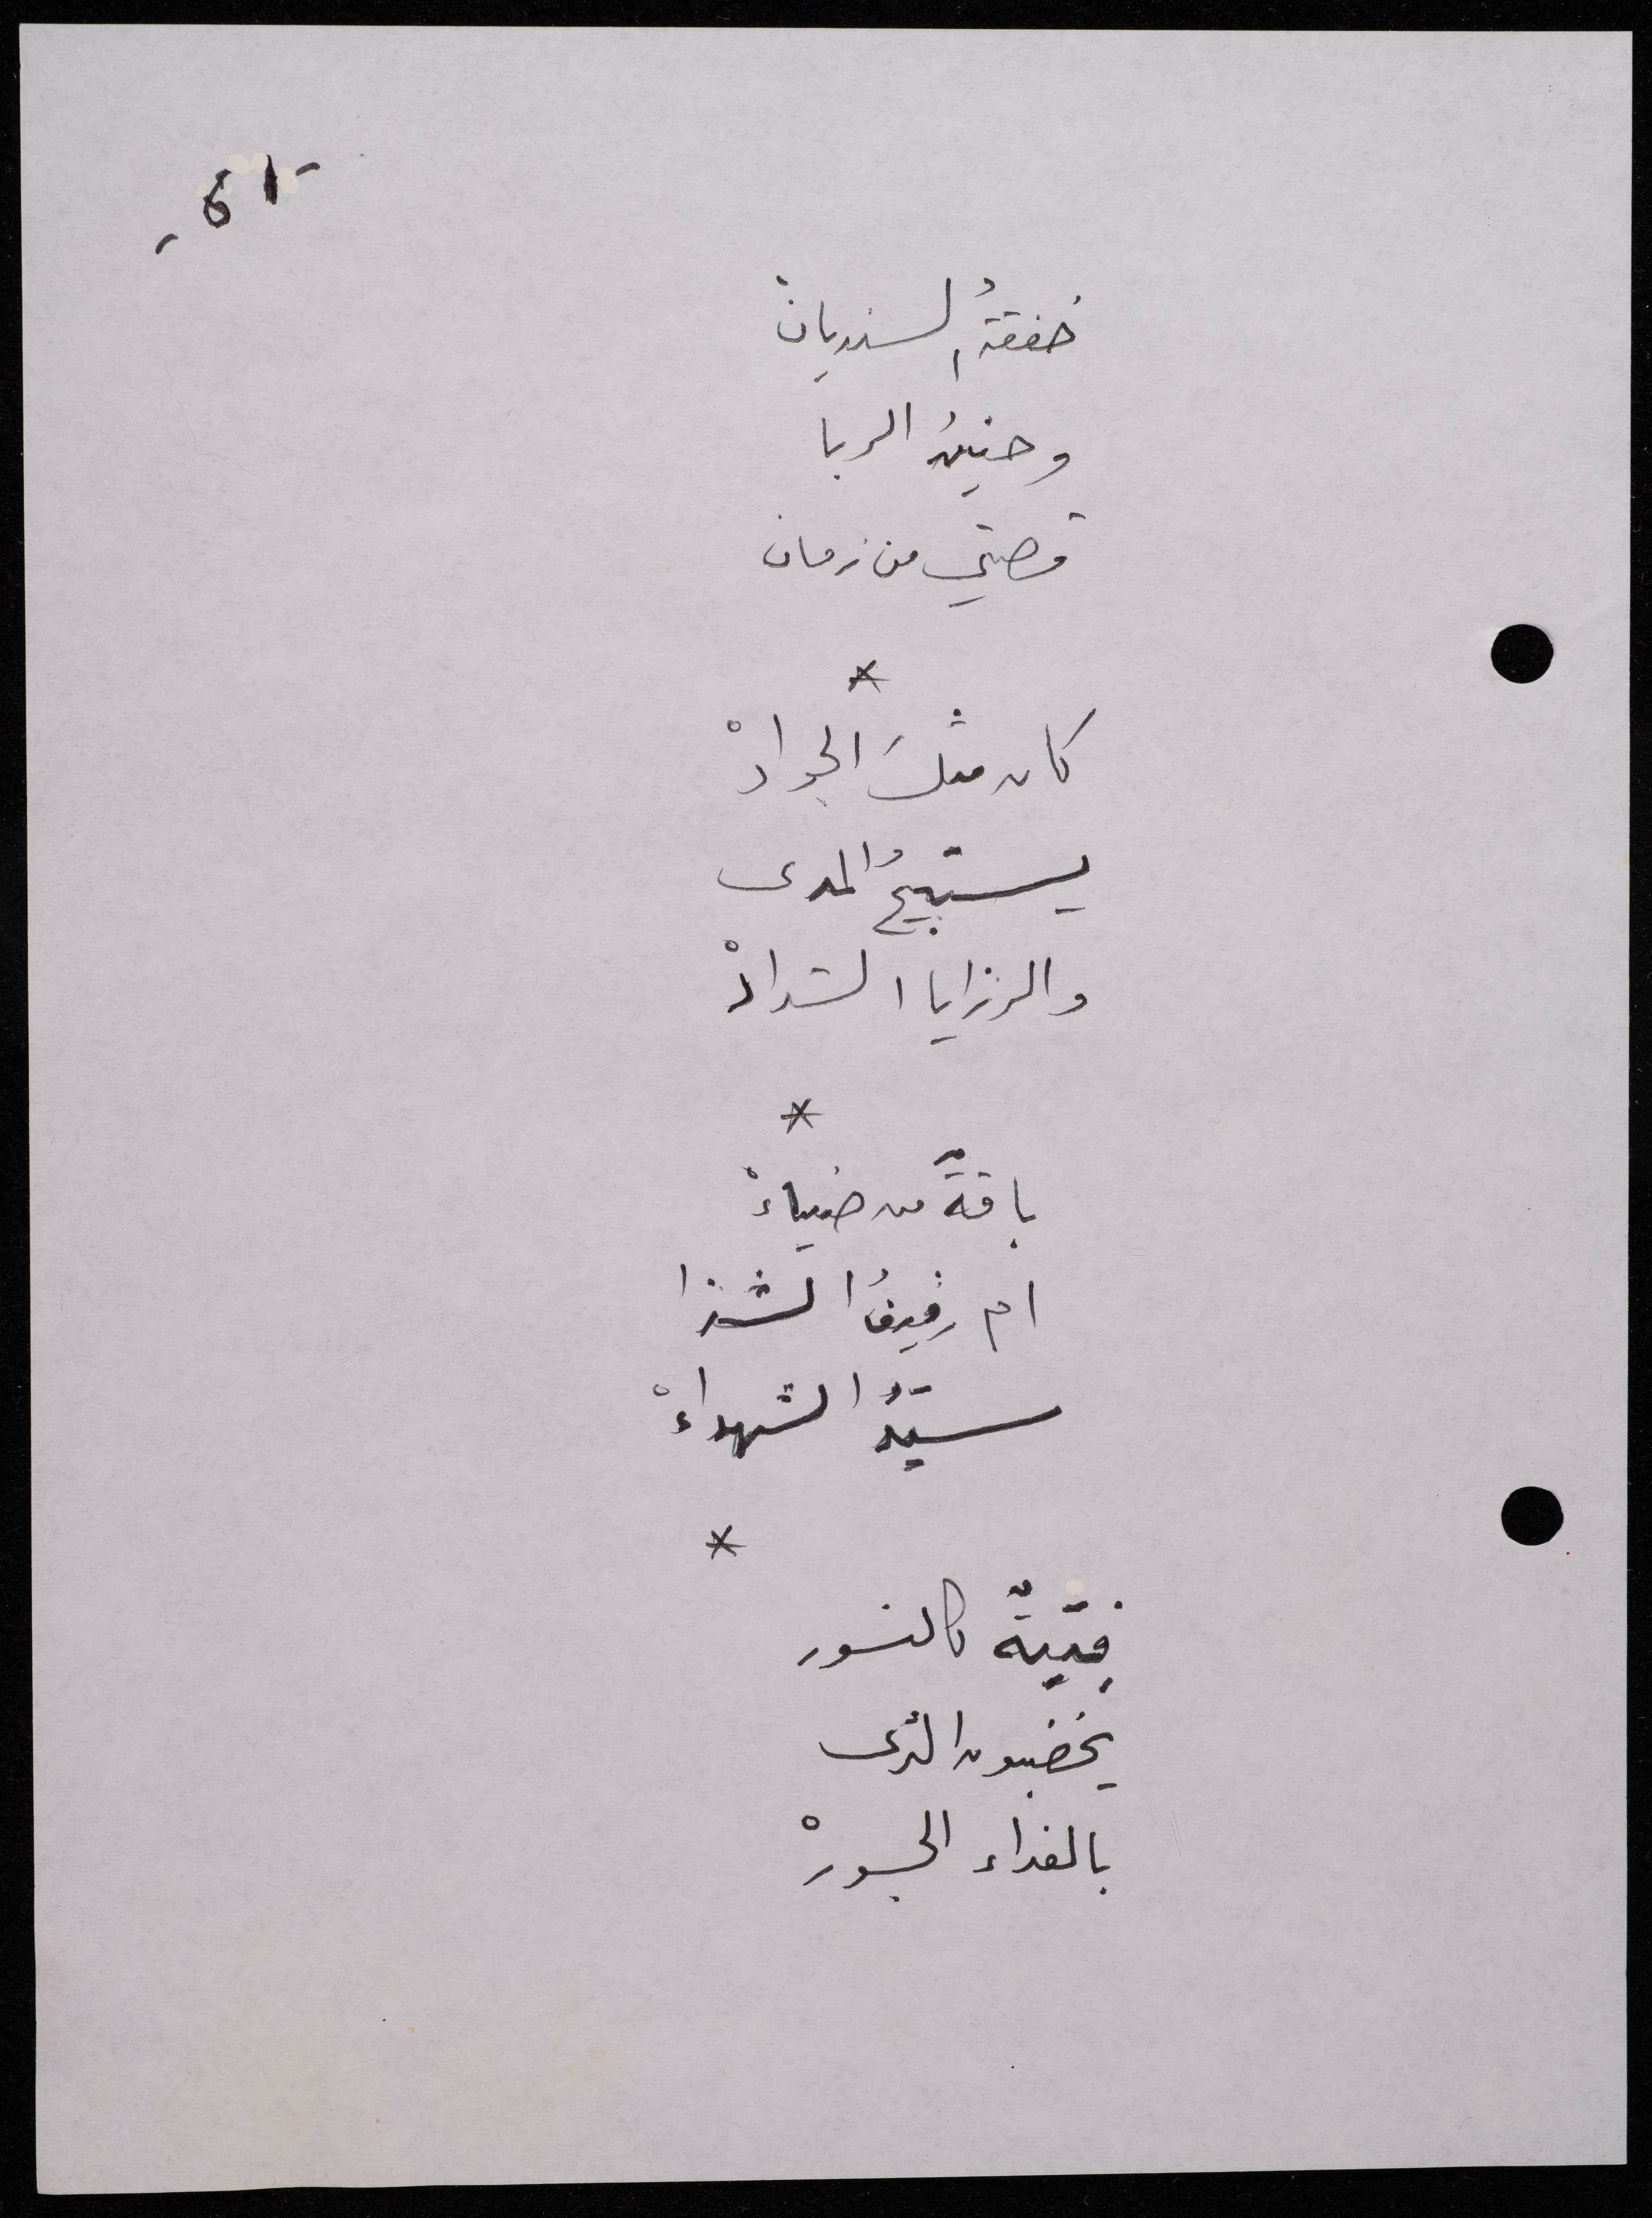 - ٥١ -
خفقةُ السنديانْ
وحنينُ الربا
قصتي من زمان
*
كان مثلكَ الجوادْ
يستبيحُ المدى
والرزايا الشدادْ
*
باقةً من ضياءْ
ام رفيفُ الشذا
سيّدُ الشهداءْ
*
فِتيةٌ كالنسور
يخضبون الثرى
بالفداء الجسورْ